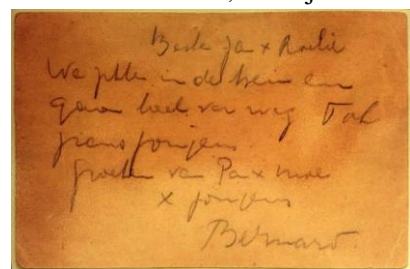 Beste Jan x Roelie
We zitten in de trein en
gaan heel ver weg Tot
jongens
groeten van Pa x moe
x jongens
Bernard